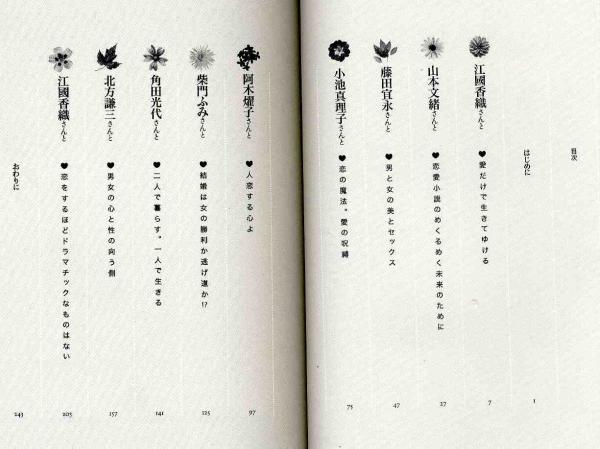 目次
はじめに 1
江國香織さんと ♥愛だけで生きてゆける 7
山本文緒さんと ♥恋愛小説のめくるめく未来のために 27
藤田宜永さんと ♥男と女の美とセックス 47
小池真理子さんと ♥恋の魔法。愛の呪縛 75
阿木燿子さんと ♥人恋する心よ 97
柴門ふみさんと ♥結婚は女の勝利か逃げ道か!? 125
角田光代さんと ♥二人で暮らす。一人で生きる 141
北方謙三さんと ♥男女の心と性の向う側 157
江國香織さんと ♥恋をするほどドラマチックなものはない 205
おわりに 243